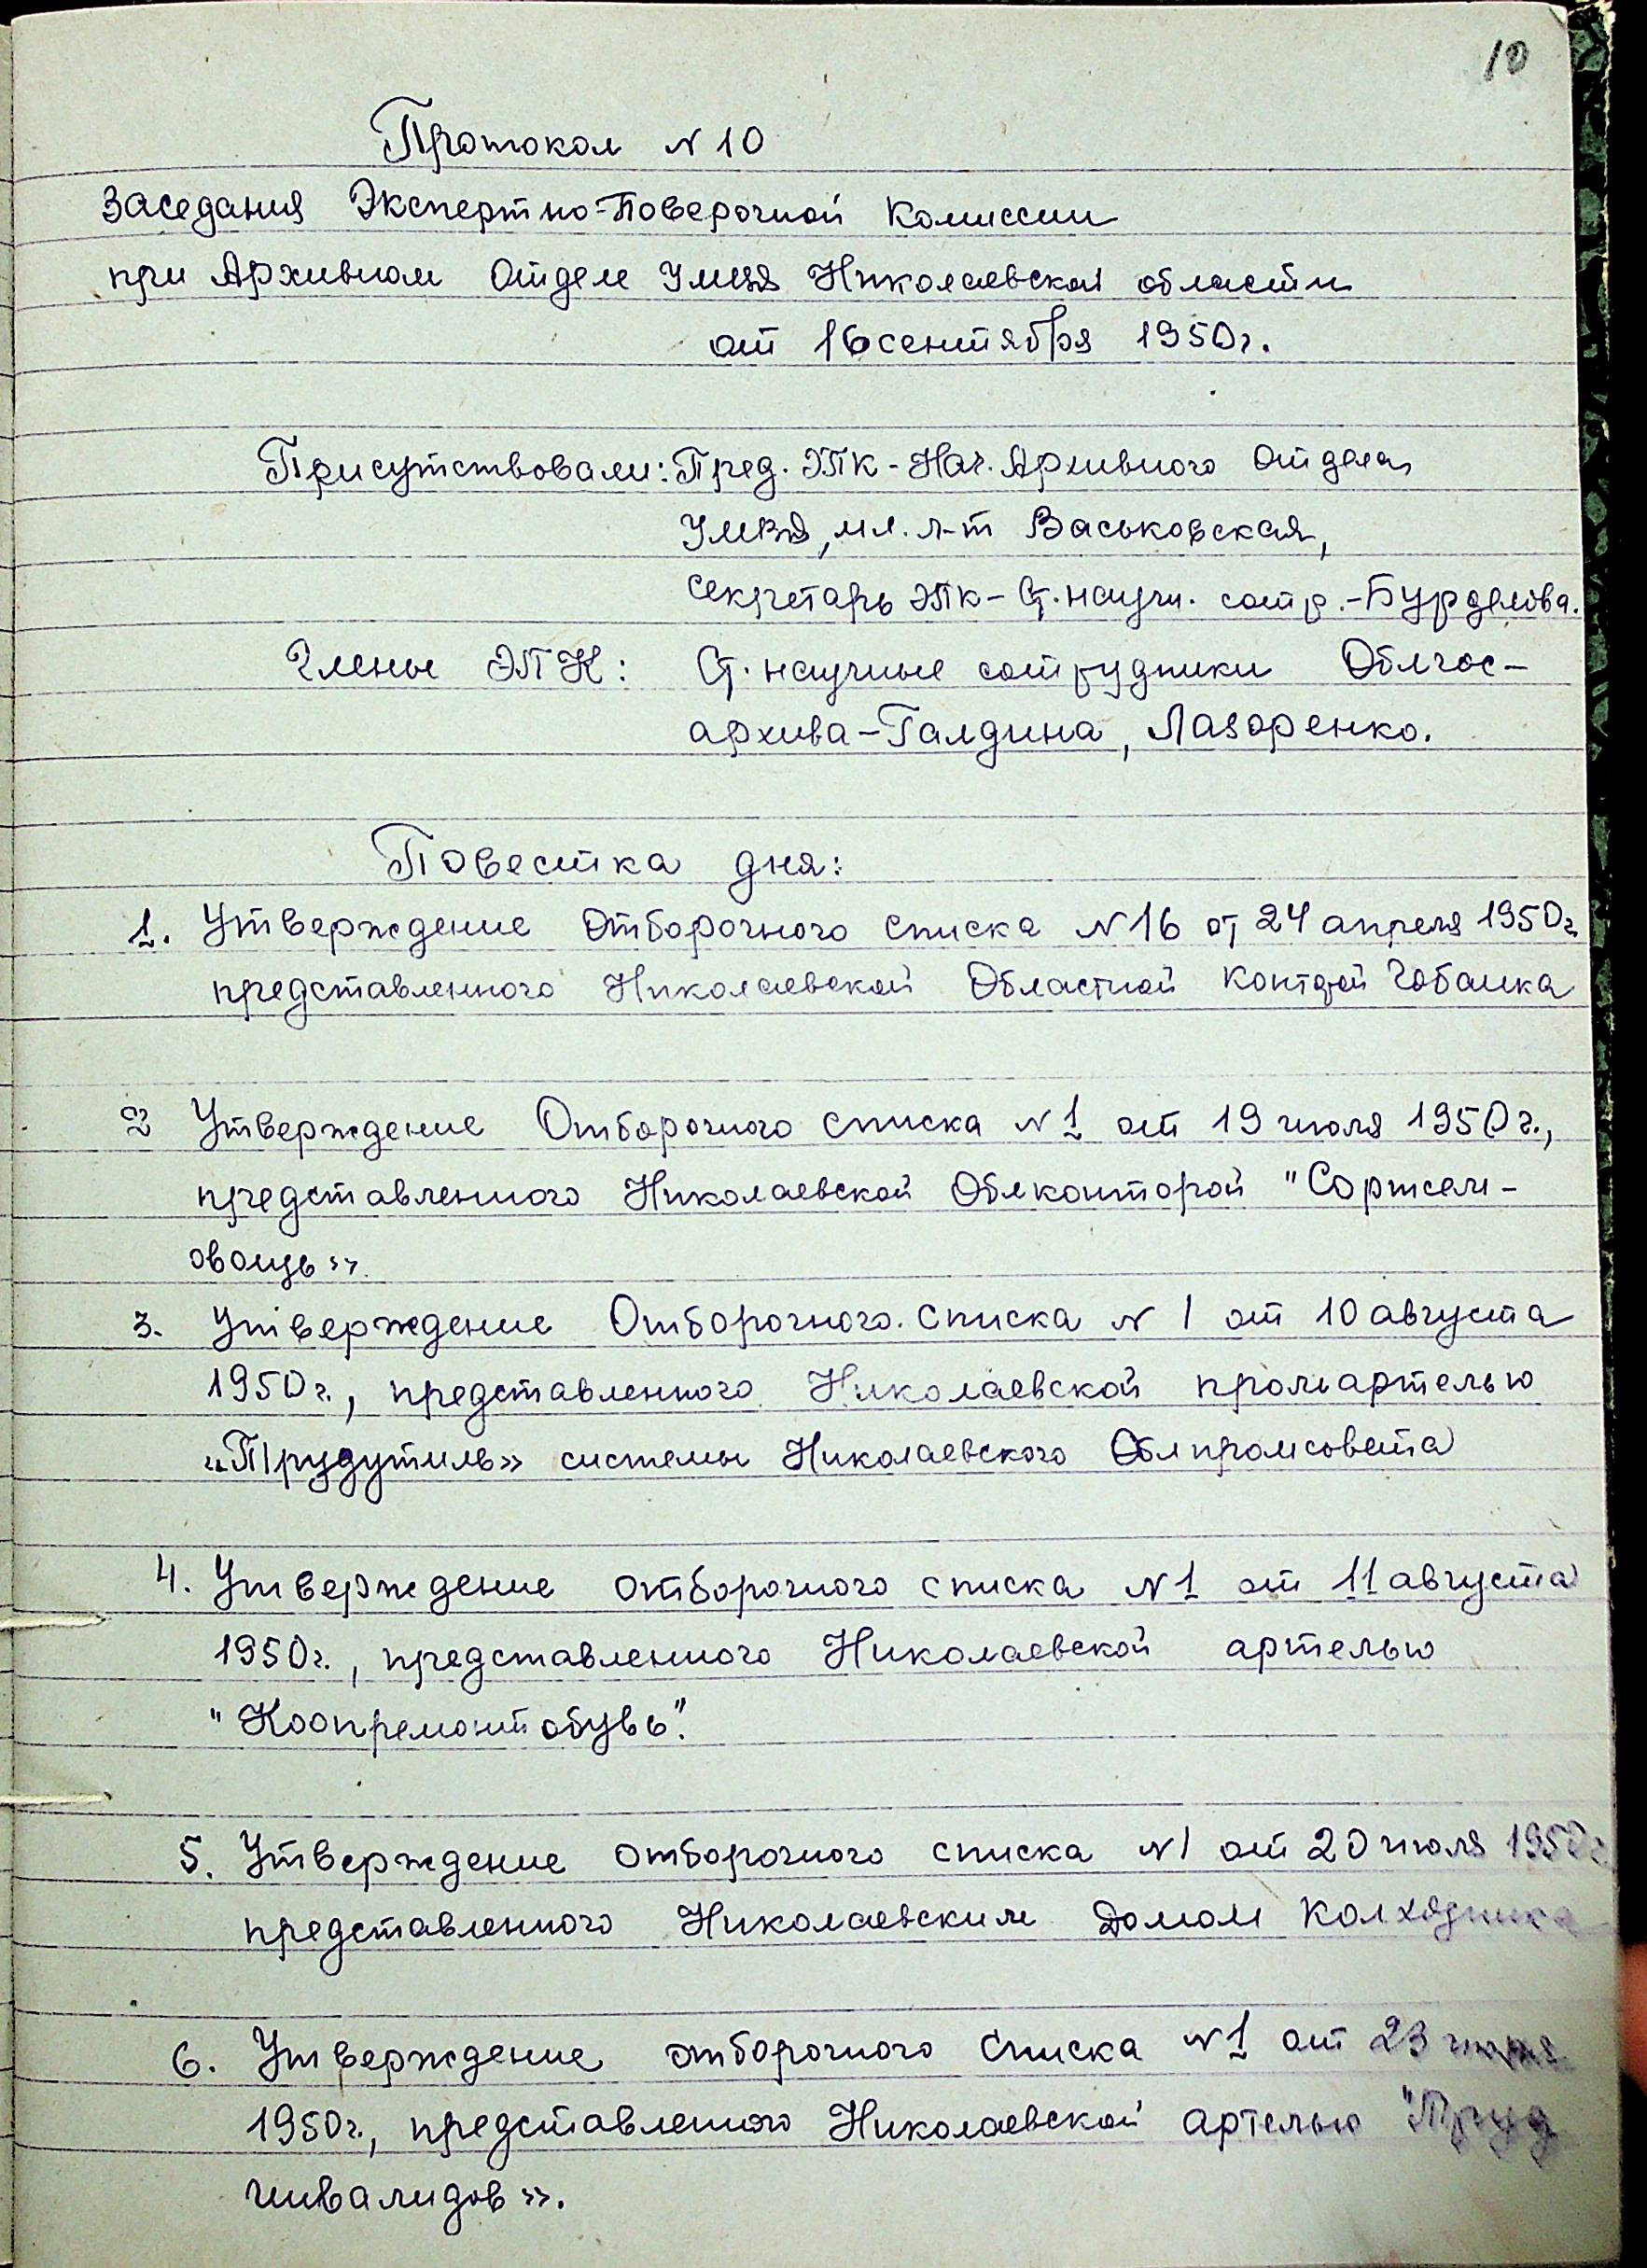 10
Протокол N 10
заседания Экспертно-Поверочной Комиссии
при Архивном Отделе УМВД Николаевской области
от 16 сентября 1950г.
Присутствовали: Пред. ЭПК - Нач. Архивного Отдела
УМВД, мл. л-т Васьковская,
секретарь ЭПК - Ст. научн. сотр. - Бурделова.
Члены ЭПК: Ст. научные сотрудники Облгос-
архива - Галдина, Лазоренко.
Повестка дня:
1. Утверждение Отборочного списка N 16 от 24 апреля 1950г.
представленного Николаевской Областной Конторой
2 Утверждение Отборочного списка N 1 от 19 июля 1950г.,
представленного Николаевской Облконторой "Сортсем-
овощь».
3. Утверждение Отборочного списка N 1 от 10 августа
1950г., представленного Николаевской промартелью
«Трудутиль» системы Николаевского Облпромсовета
4. Утверждение отборочного списка N 1 от 11 августа
1950г., представленного Николаевской артелью
"Коопремонтобувь".
5. Утверждение отборочного списка N 1 от 20 июля 1950г.
представленного Николаевским Домом Колхозника
6. Утверждение отборочного списка N 1 от 23
1950г., представленного Николаевской артелью "Труд
инвалидов».